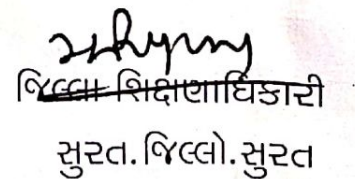 જિલ્લા શિક્ષણાધિકારી
સુરત. જિલ્લો. સુરત